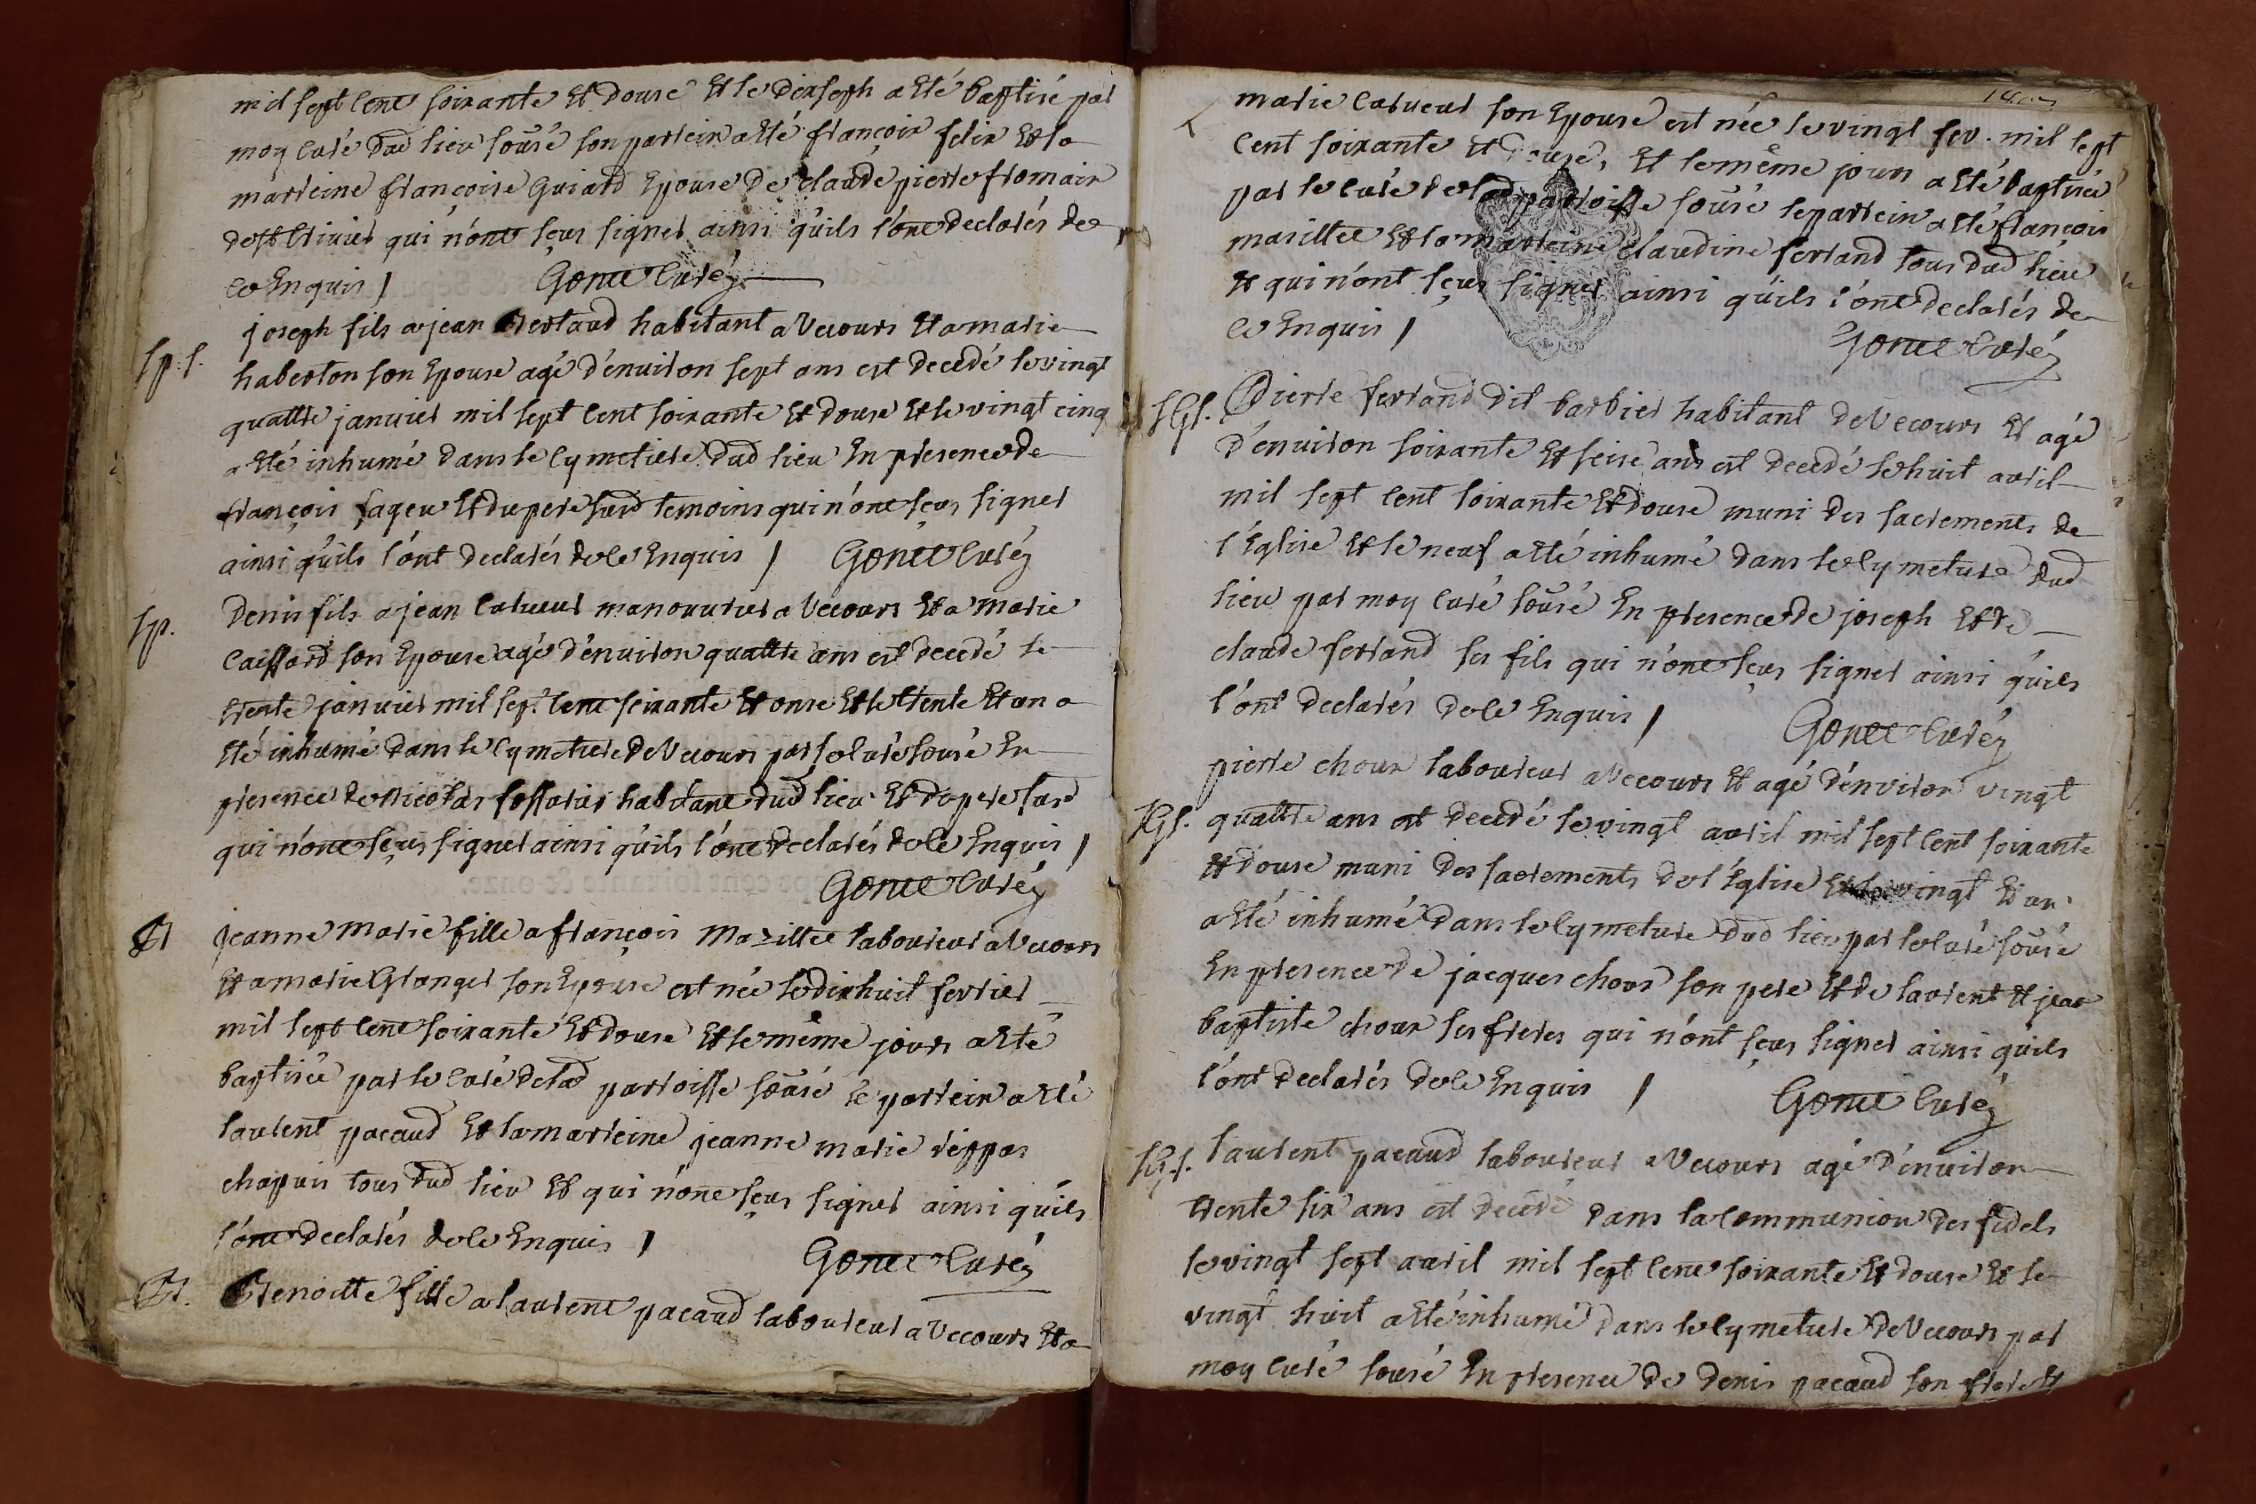 mil sept cent soixante Et douse Et le dixsept a Eté baptisé par
moy curé dud lieu sousé son parrein a Eté françois felix Et la
marreine françoise Guiard Epouse de claude pierre fromain
de st trivier qui n'ont sçus signer ainsi qu'ils l'ont declarés de
ce Enquis / Gonet curé
joseph fils a jean Bertaud habitant a Vecours Et a marie
haberton son Epouse agé d'environ sept ans est decedé le vingt
quattre janvier mil sept cent soixante Et douse Et le vingt cinq
a Eté inhumé dans le cymetiere dud lieu En presence de
françois sageu Et du pere susd temoins qui n'ont sçus signer
ainsi qu'ils l'ont declarés de ce Enquis / Gonet curé
Sp. S.
Denis fils a jean manouvrier a Vecours Et a marie
son Epouse agé d'environ quattre ans est decedé le
Sp.
trente janvier mil sept cent soixante Et onse Et le trente Et un a
Eté inhumé dans le cymetiere de Vecours par le curé sousé En
presence de nicolas habitant dud lieu Et du pere susd
qui n'ont sçus signer ainsi qu'ils l'ont declarés de ce Enquis /
Gonet curé
Bt jeanne marie fille a françois Mazillee laboureur a Vecours
Et a marie Granger son Epouse est née le dixhuit fevrier
mil sept cent soixante Et douse Et le même jour a Eté
baptisée par le curé de lad parroisse sousé le parrein a Eté
laurent pacaud Et la marreine jeanne marie
chapuis tous dud lieu Et qui n'ont sçus signer ainsi qu'ils
l'ont declarés de ce Enquis / Gonet curé
Bt. Benoitte fille a laurent pacaud laboureur a Vecours Et a
marie son Epouse est née le vingt fev. mil sept
cent soixante Et douse, Et le même jour a Eté baptisée
par le curé de lad parroisse sousé le parrein a Eté françois
masillee Et la marreine claudine ferrand tous dud lieu
Et qui n'ont sçus signer ainsi qu'ils l'ont declarés de
ce Enquis /
Gonet curé
SGs. Pierre ferrand dit barbier habitant de Vecours Et agé
d'environ soixante Et seise ans est decedé le huit avril
mil sept cent soixante Et douse muni des sacrements de
l'Eglise Et le neuf a Eté inhumé dans le cymetiere dud
lieu par moy curé sousé En presence de joseph Et de
claude ferrand ses fils qui n'ont sçus signer ainsi qu'ils
l'ont declarés de ce Enquis / Gonet curé
pierre choux laboureur a Vecours Et agé d'environ vingt
SGs. quattre ans est decedé le vingt avril mil sept cent soixante
Et douse muni des sacrements de l'Eglise Et le vingt Et un
a Eté inhumé dans le cymetiere dud lieu par le curé sousé
En presence de jacques choux son pere Et de laurent Et jean
baptiste choux ses freres qui n'ont sçus signer ainsi qu'ils
l'ont declarés de ce Enquis / Gonet curé
SGs. laurent pacaud laboureur a Vecours agé d'environ
trente six ans est decedé dans la communion des fidels
le vingt sept avril mil sept cent soixante Et douse Et le
vingt huit a Eté inhumé dans le cymetiere de Vecours par
moy curé sousé En presence de denis pacaud son frere Et